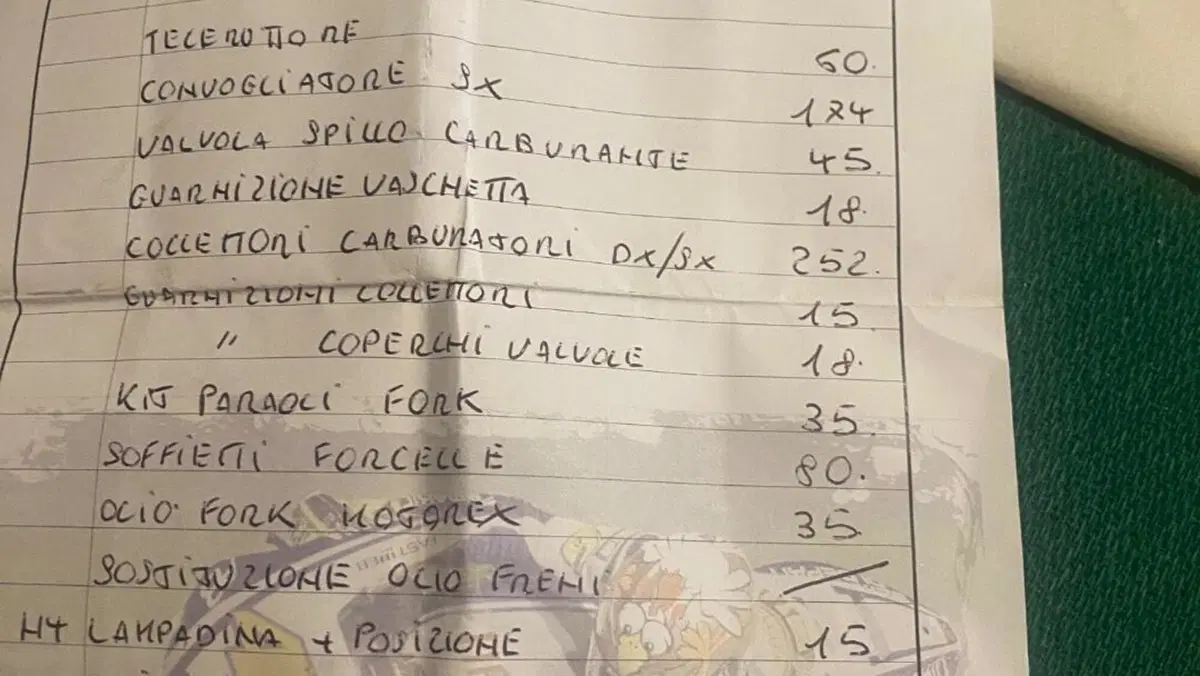 TELERUTTORE 60.
CONVOGLIATORE SX 124
VALVOLA SPILLO CARBURANTE 45.
GUARNIZIONE VASCHETTA 18.
COLLETTORI CARBURATORI DX/SX 252.
GUARNIZIONI COLLETTORI 15.
" COPERCHI VALVOLE 18.
KIT PARAOLI FORK 35.
SOFFIETTI FORCELLE 80.
OLIO FORK MOTOREX 35
SOSTITUZIONE OLIO FRENI /
H4 LAMPADINA + POSIZIONE 15